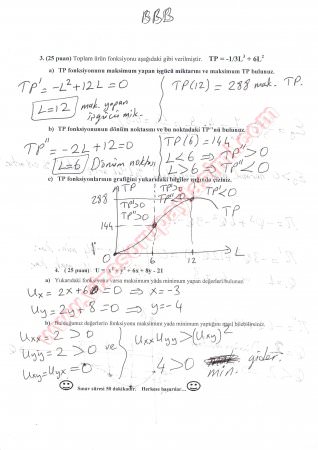 BBB
3. (25 puan) Toplam ürün fonksiyonu aşağıdaki gibi verilmiştir. TP = -1/3L³ + 6L²
a) TP fonksiyonunu maksimum yapan işgücü miktarını ve maksimum TP bulunuz.
TP' = -L² + 12L = 0
TP(12) = 288 mak. TP.
L=12 mak. yapan işgücü mik.
b) TP fonksiyonunun dönüm noktasını ve bu noktadaki TP''nü bulunuz.
TP'' = -2L + 12 = 0
TP(6) = 144
L=6 Dönüm noktası
L<6 ⇒ TP''>0
L>6 ⇒ TP''<0
c) TP fonksiyonlarının grafiğini yukarıdaki bilgiler ışığında çiziniz.
TP
288
TP'>0
TP''>0
TP'>0
TP''<0
TP'<0
TP
144
0
6
12
L
4. ( 25 puan) U = x² + y² + 6x + 8y - 21
a) Yukarıdaki fonksiyonu varsa maksimum yada minimum yapan değerleri bulunuz.
Ux = 2x + 6 = 0 ⇒ x = -3
Uy = 2y + 8 = 0 ⇒ y = -4
b) Bulduğunuz değerlerin fonksiyonu maksimum yada minimum yaptığını nasıl bilebilirsiniz.
Uxx = 2 > 0
Uyy = 2 > 0 ve
Uxy = Uyx = 0
Uxx Uyy > (Uxy)²
4 > 0 min. gider.
Sınav süresi 50 dakikadır. Herkese başarılar....